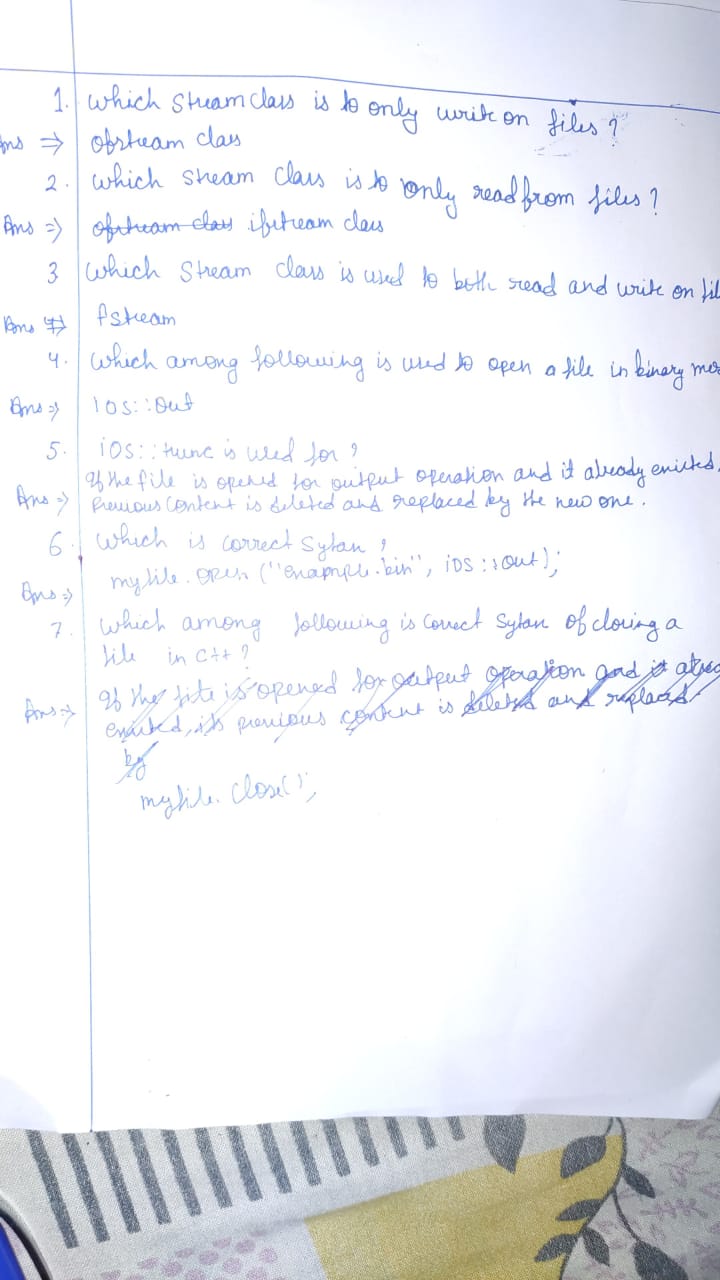 1. Which Stream class is to only write on files ?
Ans ⇒ ofstream class
2. Which Stream Class is to only read from files ?
Ans ⇒ ofstream class ifstream class
3 Which Stream class is used to both read and write on fil
Ans ⇒ fstream
4. Which among following is used to open a file in binary mo
Ans ⇒ ios::out
5. ios::trunc is used for ?
If the file is opened for output operation and it already existed,
Ans ⇒ Previous Content is deleted and replaced by the new one.
6. Which is correct Sytax ?
Ans ⇒ myfile.open ("example.bin", ios::out);
7. Which among following is Correct Sytax of closing a
file in C++ ?
If the file is opened for output operation and it alrea
Ans ⇒ existed, its previous content is deleted and replaced
by
myfile.close();